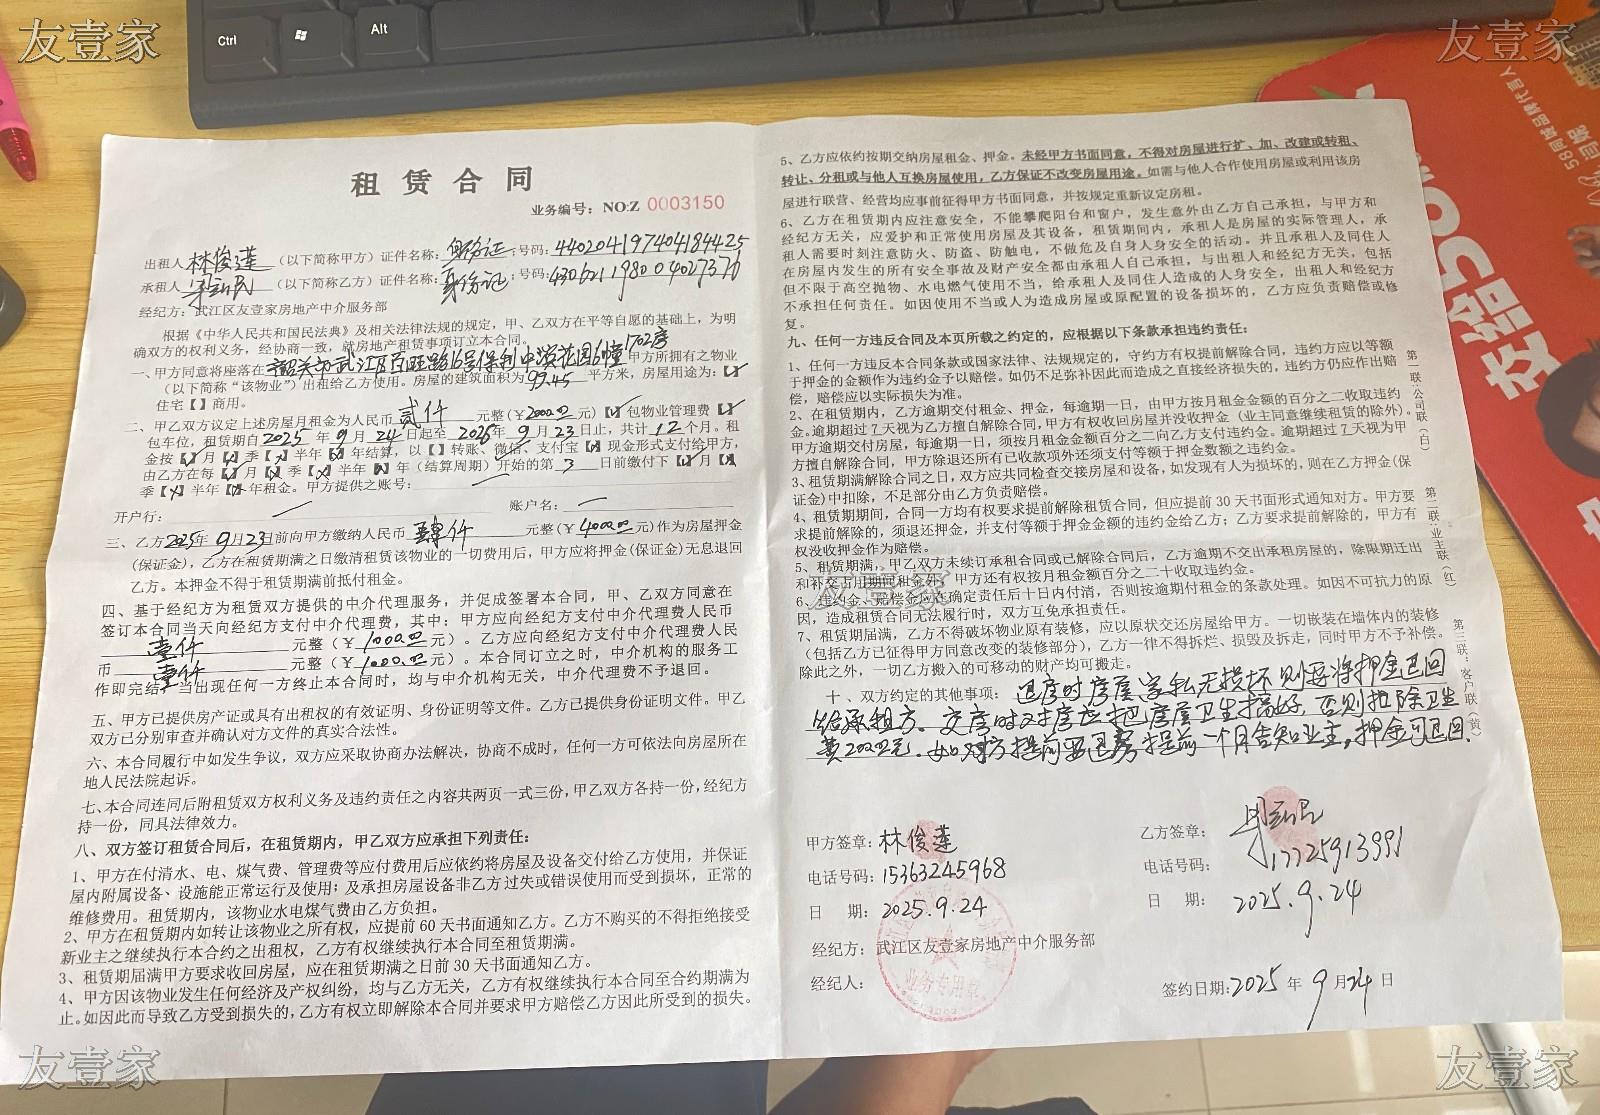 友壹家
友壹家
Ctrl
Alt
租 赁 合 同
业务编号：NO:Z 0003150
出租人 林俊莲 （以下简称甲方）证件名称：身份证；号码：440204197404184425
承租人 （以下简称乙方）证件名称：身份证；号码：430621198004027376
经纪方：武江区友壹家房地产中介服务部
根据《中华人民共和国民法典》及相关法律法规的规定，甲、乙双方在平等自愿的基础上，为明
确双方的权利义务，经协商一致，就房地产租赁事项订立本合同。
一、甲方同意将座落在 韶关市武江区百旺路16号保利中濱花园6幢1702房 甲方所拥有之物业
（以下简称“该物业”）出租给乙方使用。房屋的建筑面积为 97.45 平方米，房屋用途为：【✓】
住宅【 】商用。
二、甲乙双方议定上述房屋月租金为人民币 贰仟 元整（￥2000.00元）【✓】包物业管理费【✓】
包车位，租赁期自2025年9月24日起至2026年9月23日止，共计12个月。租
金按【✓】月【×】季【×】半年【×】年结算，以【 】转账、微信、支付宝【×】现金形式支付给甲方，
由乙方在每【✓】月【×】季【×】半年【×】年（结算周期）开始的第 3 日前缴付下【✓】月【×】
季【×】半年【×】年租金。甲方提供之账号：
开户行： 账户名：
三、乙方2025年9月23日前向甲方缴纳人民币 肆仟 元整（￥4000.00元）作为房屋押金
(保证金)，乙方在租赁期满之日缴清租赁该物业的一切费用后，甲方应将押金(保证金)无息退回
乙方。本押金不得于租赁期满前抵付租金。
四、基于经纪方为租赁双方提供的中介代理服务，并促成签署本合同，甲、乙双方同意在
签订本合同当天向经纪方支付中介代理费，其中：甲方应向经纪方支付中介代理费人民币
壹仟 元整（￥1000.00元）。乙方应向经纪方支付中介代理费人民
币 壹仟 元整（￥1000.00元）。本合同订立之时，中介机构的服务工
作即完结，当出现任何一方终止本合同时，均与中介机构无关，中介代理费不予退回。
五、甲方已提供房产证或具有出租权的有效证明、身份证明等文件。乙方已提供身份证明文件。甲乙
双方已分别审查并确认对方文件的真实合法性。
六、本合同履行中如发生争议，双方应采取协商办法解决，协商不成时，任何一方可依法向房屋所在
地人民法院起诉。
七、本合同连同后附租赁双方权利义务及违约责任之内容共两页一式三份，甲乙双方各持一份，经纪方
持一份，同具法律效力。
八、双方签订租赁合同后，在租赁期内，甲乙双方应承担下列责任：
1、甲方在付清水、电、煤气费、管理费等应付费用后应依约将房屋及设备交付给乙方使用，并保证
屋内附属设备、设施能正常运行及使用；及承担房屋设备非乙方过失或错误使用而受到损坏，正常的
维修费用。租赁期内，该物业水电煤气费由乙方负担。
2、甲方在租赁期内如转让该物业之所有权，应提前60天书面通知乙方。乙方不购买的不得拒绝接受
新业主之继续执行本合约之出租权，乙方有权继续执行本合同至租赁期满。
3、租赁期届满甲方要求收回房屋，应在租赁期满之日前30天书面通知乙方。
4、甲方因该物业发生任何经济及产权纠纷，均与乙方无关，乙方有权继续执行本合同至合约期满为
止。如因此而导致乙方受到损失的，乙方有权立即解除本合同并要求甲方赔偿乙方因此所受到的损失。
5、乙方应依约按期交纳房屋租金、押金。未经甲方书面同意，不得对房屋进行扩、加、改建或转租、
转让、分租或与他人互换房屋使用，乙方保证不改变房屋用途。如需与他人合作使用房屋或利用该房
屋进行联营、经营均应事前征得甲方书面同意，并按规定重新议定房租。
6、乙方在租赁期内应注意安全，不能攀爬阳台和窗户，发生意外由乙方自己承担，与甲方和
经纪方无关，应爱护和正常使用房屋及其设备，租赁期间内，承租人是房屋的实际管理人，承
租人需要时刻注意防火、防盗、防触电，不做危及自身人身安全的活动。并且承租人及同住人
在房屋内发生的所有安全事故及财产安全都由承租人自己承担，与出租人和经纪方无关，包括
但不限于高空抛物、水电燃气使用不当，给承租人及同住人造成的人身安全，出租人和经纪方
不承担任何责任。如因使用不当或人为造成房屋或原配置的设备损坏的，乙方应负责赔偿或修
复。
九、任何一方违反合同及本页所载之约定的，应根据以下条款承担违约责任：
1、任何一方违反本合同条款或国家法律、法规规定的，守约方有权提前解除合同，违约方应以等额
于押金的金额作为违约金予以赔偿。如仍不足弥补因此而造成之直接经济损失的，违约方仍应作出赔
偿，赔偿应以实际损失为准。
2、在租赁期内，乙方逾期交付租金、押金，每逾期一日，由甲方按月租金金额的百分之二收取违约
金。逾期超过7天视为乙方擅自解除合同，甲方有权收回房屋并没收押金（业主同意继续租赁的除外）。
甲方逾期交付房屋，每逾期一日，须按月租金金额百分之二向乙方支付违约金。逾期超过7天视为甲
方擅自解除合同，甲方除退还所有已收款项外还须支付等额于押金数额之违约金。
3、租赁期满解除合同之日，双方应共同检查交接房屋和设备，如发现有人为损坏的，则在乙方押金(保
证金)中扣除，不足部分由乙方负责赔偿。
4、租赁期期间，合同一方均有权要求提前解除租赁合同，但应提前30天书面形式通知对方。甲方要
求提前解除的，须退还押金，并支付等额于押金金额的违约金给乙方；乙方要求提前解除的，甲方有
权没收押金作为赔偿。
5、租赁期满，甲乙双方未续订承租合同或已解除合同后，乙方逾期不交出承租房屋的，除限期迁出
和补交占用期间租金外，甲方还有权按月租金额百分之二十收取违约金。
6、违约金、赔偿金应在确定责任后十日内付清，否则按逾期付租金的条款处理。如因不可抗力的原
因，造成租赁合同无法履行时，双方互免承担责任。
7、租赁期届满，乙方不得破坏物业原有装修，应以原状交还房屋给甲方。一切嵌装在墙体内的装修
（包括乙方已征得甲方同意改变的装修部分），乙方一律不得拆烂、损毁及拆走，同时甲方不予补偿。
除此之外，一切乙方搬入的可移动的财产均可搬走。
十、双方约定的其他事项： 退房时房屋家私无损坏则要将押金退回
给承租方。交房时对房应把房屋卫生搞好，否则扣除卫生
费200.00元。如对方提前要退房提前一个月告知业主，押金可退回。
甲方签章：林俊莲
电话号码：15363245968
日 期：2025.9.24
经纪方：武江区友壹家房地产中介服务部
经纪人：
业务专用章
乙方签章：
电话号码：17725913991
日 期：2025.9.24
签约日期：2025年9月24日
第一联：公司联（白）
第二联：业主联（红）
第三联：客户联（黄）
友壹家
58同城品牌代言人
友壹家
友壹家